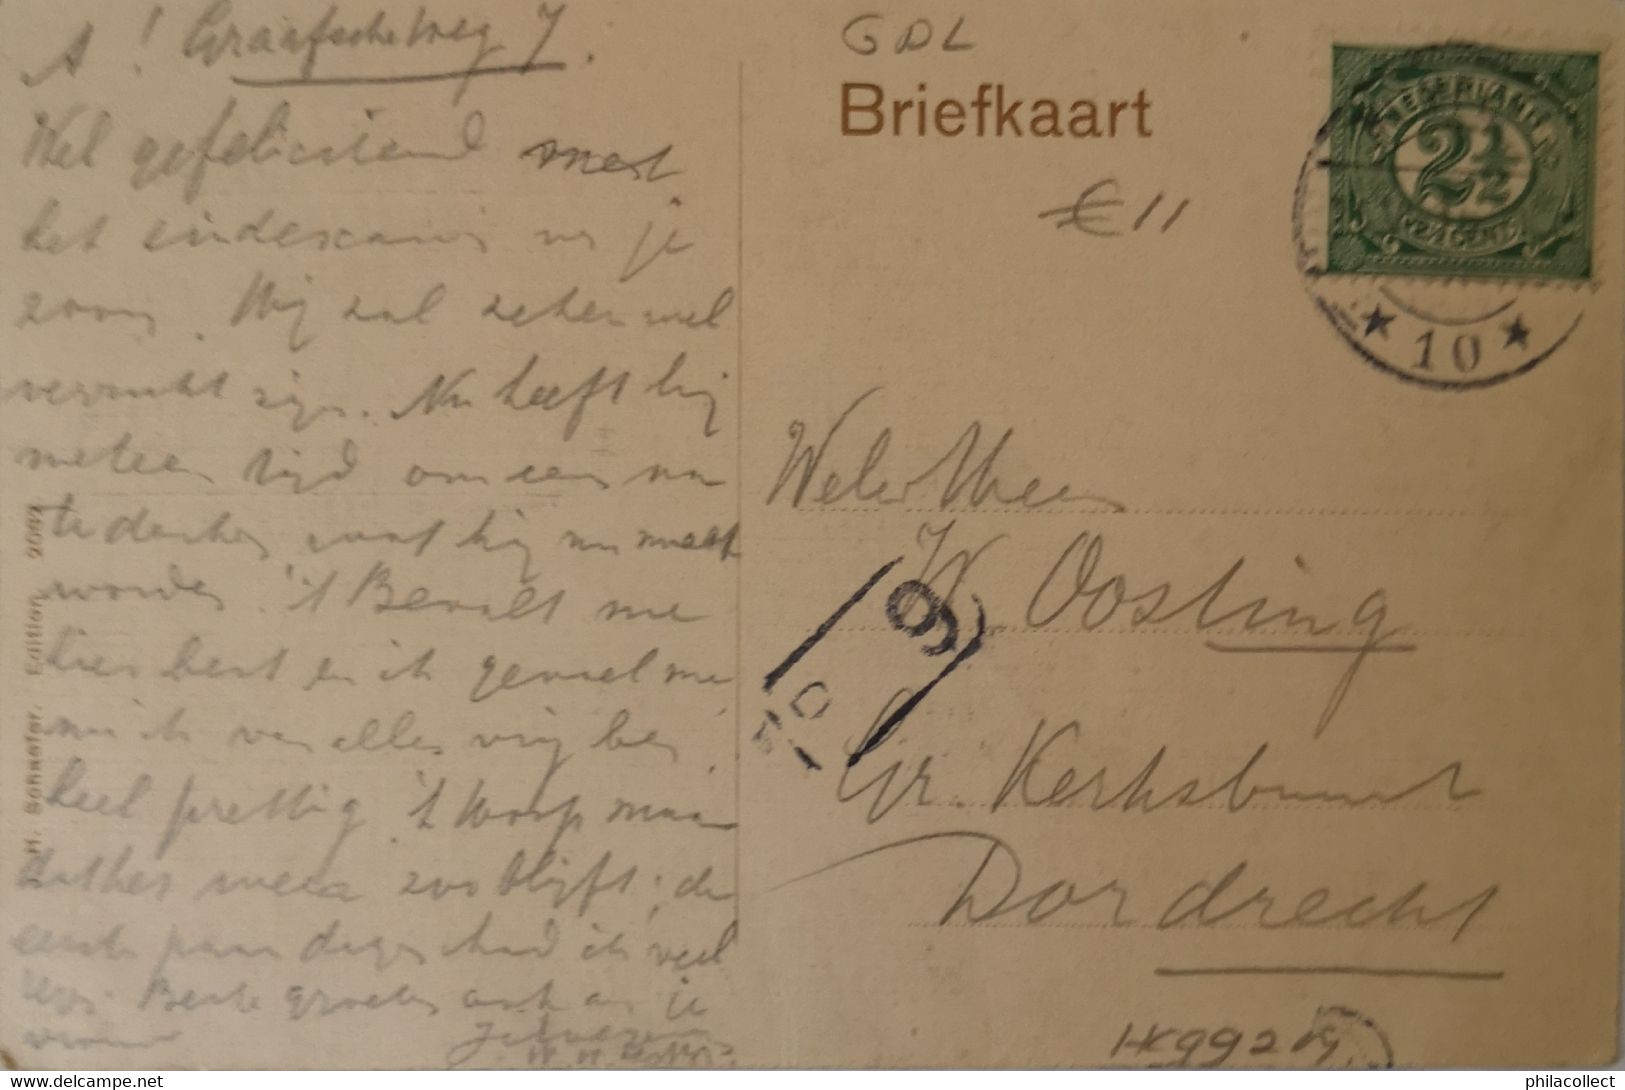 A! Graafscheweg 7.
Wel gefeliciteerd met
het eindexamen van je
zoon. Hij zal zeker wel
verrukt zijn. Nu heeft hij
meteen tijd om eens na
te denken wat hij nu moet
worden. 't Bevalt me
hier best en ik gevoel me
nu ik van alles vrij ben
heel prettig. 't Hoop maar
dat het weer zoo blijft; de
eerste paar dagen had ik veel
Beste groeten ook aan je
vrouw
H. Schaefer. Edition 2002
GDL
Briefkaart
€ 11
NEDERLAND
2 1/2
CENT
10
WelEdHeer
W. Oosting
Gr. Kerksbuurt
Dordrecht
9
HK99219
philacollect.delcampe.net
philacollect